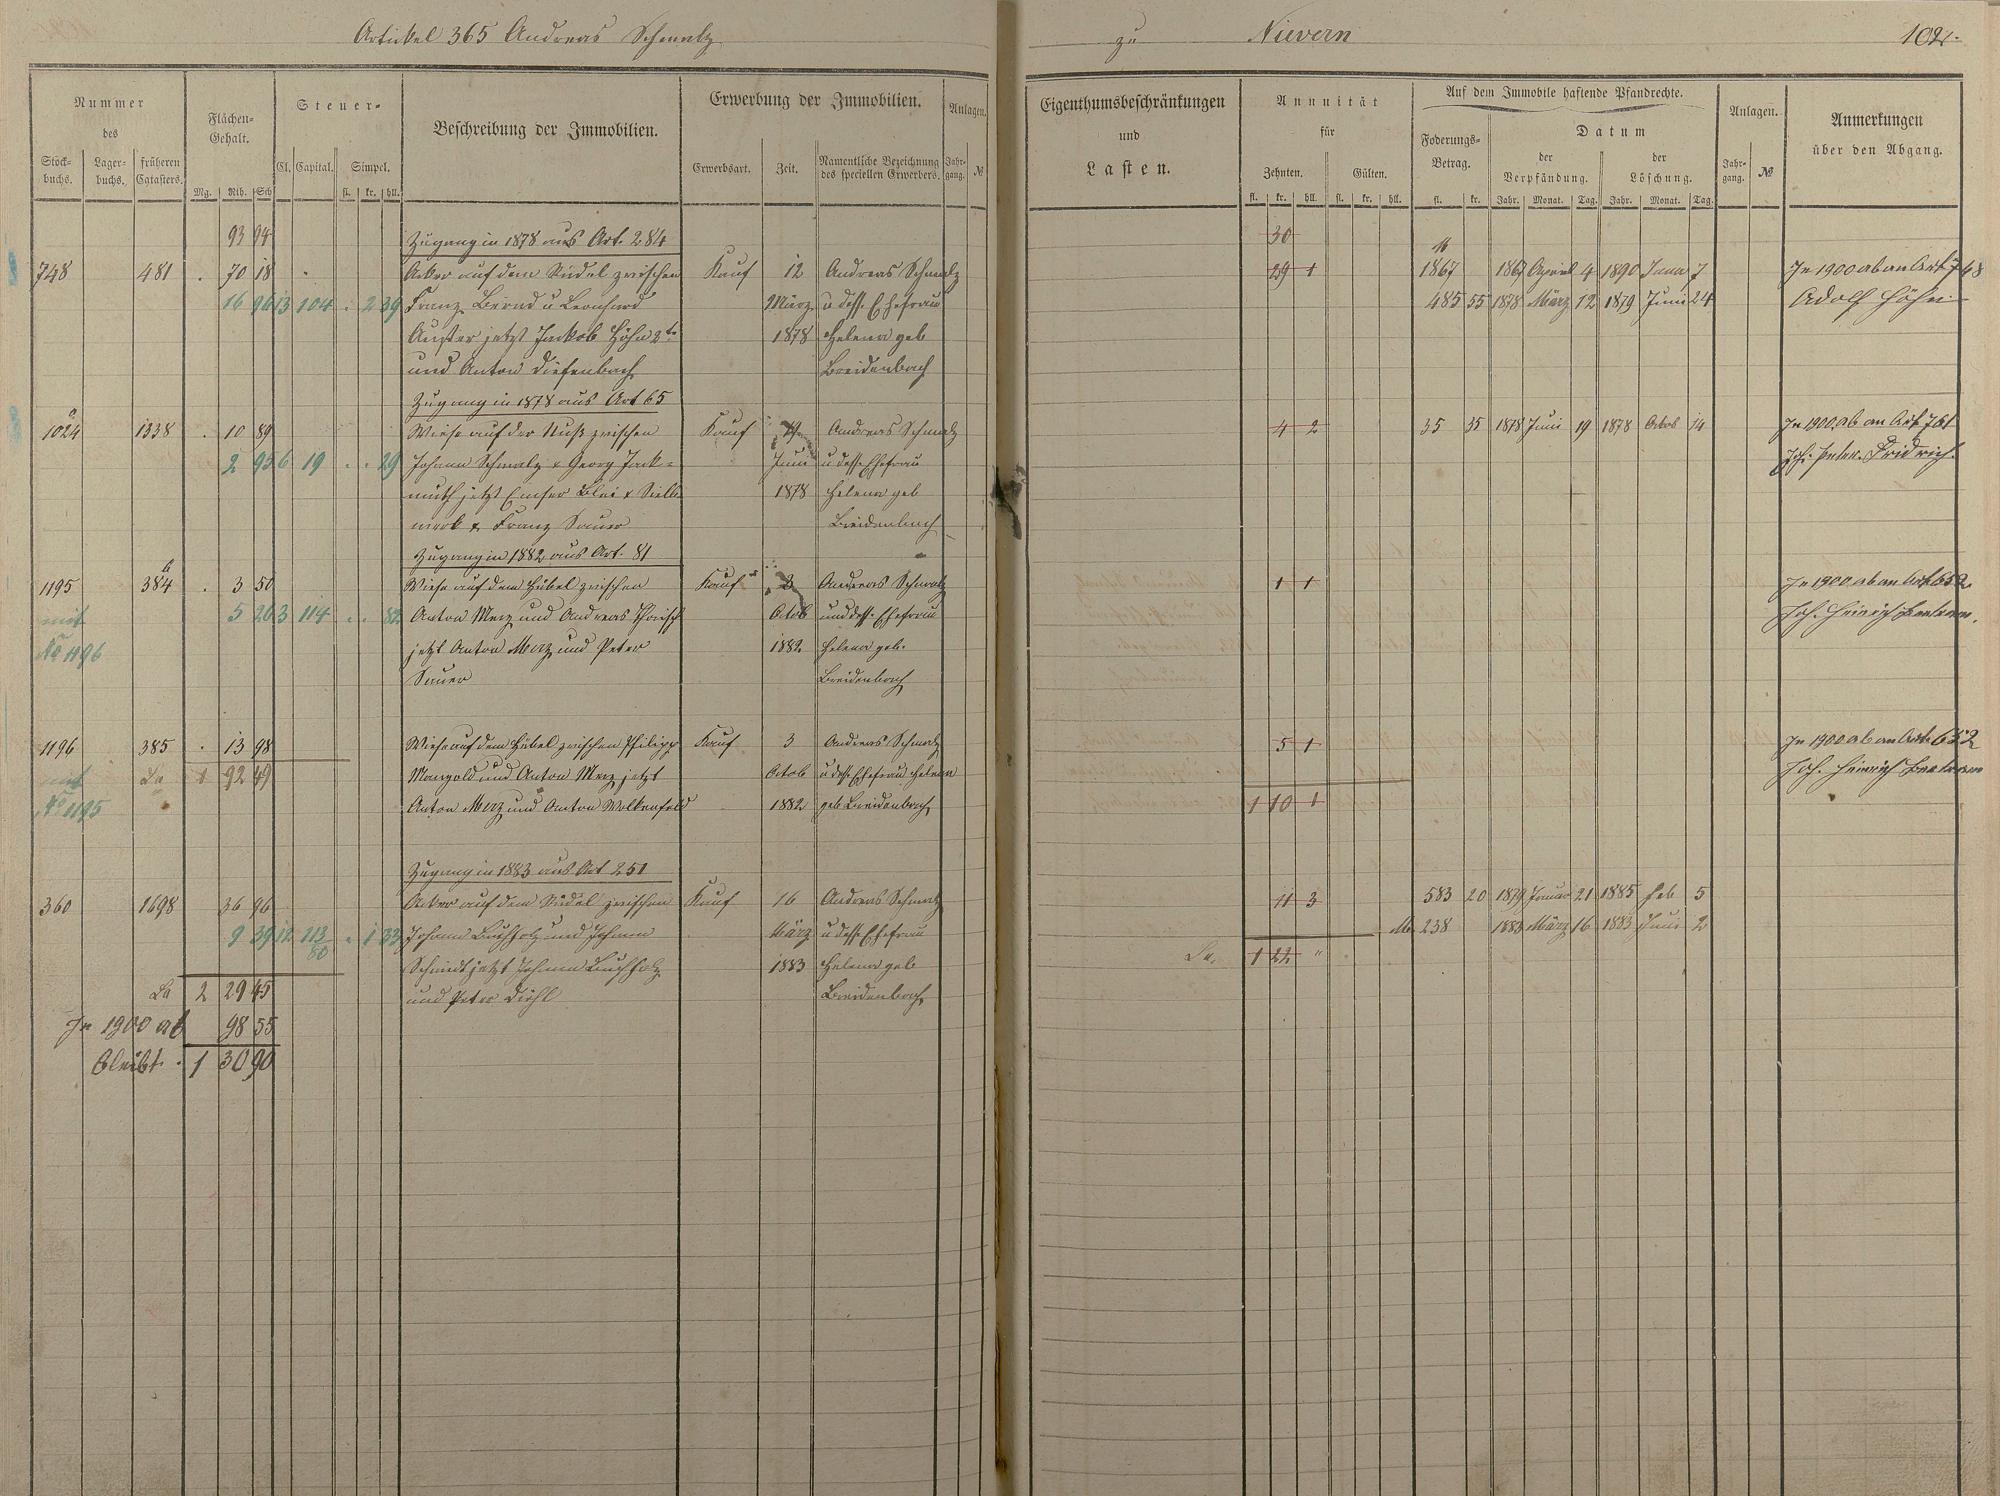 Artickel 365 Andreas Schmalz
zu Nievern
102
Nummer
des
Stock-buchs.
Lager-buchs.
früheren Catasters.
Flächen-Gehalt.
Mg. Rth. Sch
Steuer-
Cl. Capital. Simpel.
fl. kr. hll.
Beschreibung der Immobilien.
Erwerbung der Immobilien.
Erwerbsart.
Zeit.
Namentliche Bezeichnung des speciellen Erwerbers.
Anlagen.
Jahr-gang. №
Eigenthumsbeschränkungen
und
Lasten.
Annuität
für
Zehnten. Gülten.
fl. kr. hll. fl. kr. hll.
Auf dem Immobile haftende Pfandrechte.
Foderungs-Betrag.
fl. kr.
Datum
der Verpfändung.
Jahr. Monat. Tag.
der Löschung.
Jahr. Monat. Tag.
Anlagen.
Jahr-gang. №
Anmerkungen
über den Abgang.
93 94 Zugang in 1878 aus Art. 284 30
748 481 . 70 18 Acker auf dem Südel zwischen Kauf 12 Andreas Schmalz 29 1 1867 1867 April 4 1890 Janu 7 In 1900 ab an Art 748
16 96 13 104 . 2 39 Franz Bernd u Leonhard März u dess. Ehefrau 485 55 1878 März 12 1879 Juni 24 Adolf Höhn
Auster jetzt Jackob Höhn 2te 1878 Helena geb
und Anton Diefenbach Breidenbach
Zugang in 1878 aus Art 65
1024 1338 . 10 89 Wiese auf der Nuß zwischen Kauf Andreas Schmalz 4 2 35 35 1878 Juni 19 1878 Octob 14 In 1900 ab an Art 761
2 95 6 19 . . 29 Johann Schmalz & Georg Jack= Juni u dess. Ehefrau Joh. Peter Fridrich
muth jetzt Emser Blei & Silb 1878 Helena geb
werk & Franz Sauer Breidenbach
Zugang in 1882 aus Art. 81
1195 384 . 3 50 Wiese auf dem Hübel zwischen Kauf 3 Andreas Schmalz 1 1 In 1900 ab an Art 652
mit 5 26 3 114 . . 82 Anton Merz und Andreas Octob und dess. Ehefrau Joh. Heinrich
No 1196 jetzt Anton Merz und Peter 1882 Helena geb.
Sauer Breidenbach
1196 385 . 13 98 Wiese auf dem Hübel zwischen Philipp Kauf 3 Andreas Schmalz 5 1 In 1900 ab an Art 652
mit La 1 92 49 Mangold und Anton Merz jetzt Octob u dess. Ehefrau Helena Joh. Heinrich
No 1195 Anton Merz und Anton Wolkenfeld 1882 geb Breidenbach 1 10 1
Zugang in 1883 aus Art 251
360 1698 36 96 Acker auf dem Südel zwischen Kauf 16 Andreas Schmalz 11 3 583 20 1879 Januar 21 1885 Feb 5
9 39 12 113/60 . 1 33 Johann Buchholz und Johann März u dess. Ehefrau M 238 1883 März 16 1883 Juni 2
Schmidt jetzt Johann Buchholz 1883 Helena geb La. 1 22 "
La 2 29 45 und Peter Diehl Breidenbach
In 1900 ab 98 55
bleibt . 1 30 90